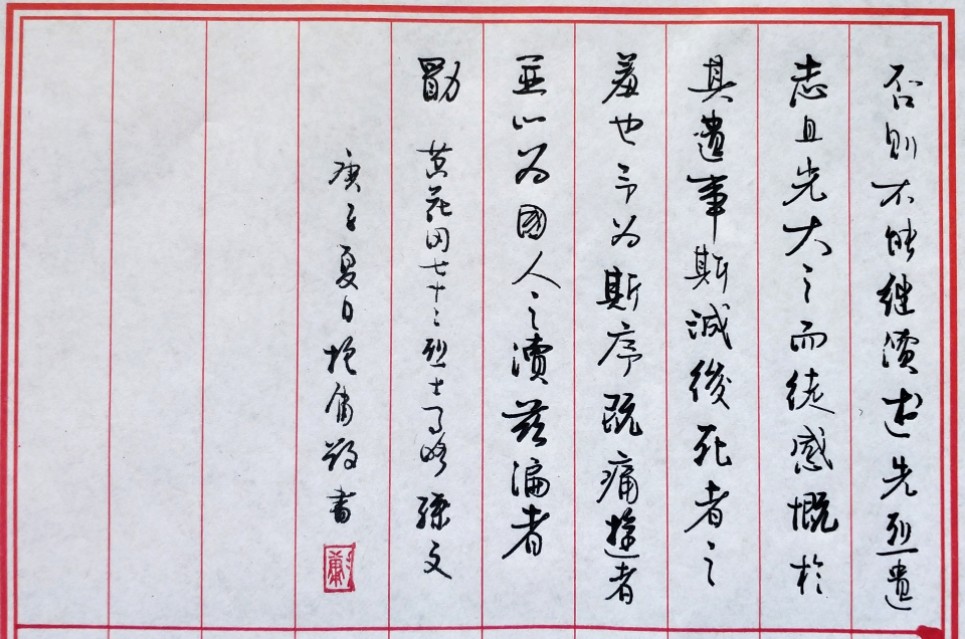 否則不能继續述先烈遺
志且光大之而徒感慨於
其遺事斯誠後死者之
羞也予为斯序既痛逝者
並以为國人之讀茲编者
勖 黄花岡七十二烈士事略 孫文
庚子夏日抱庸敬書